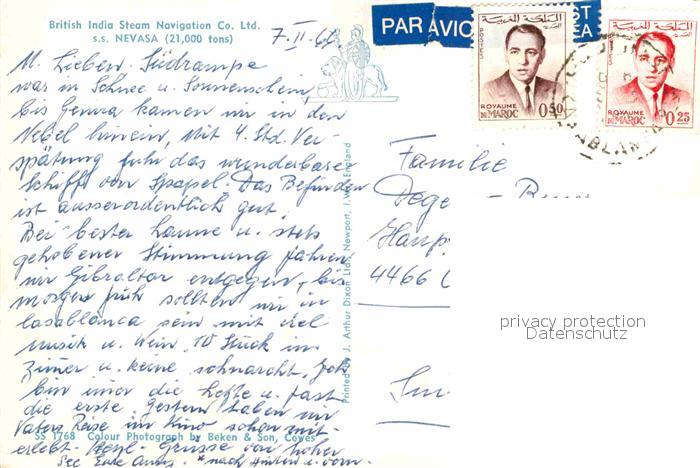 British India Steam Navigation Co. Ltd.
s.s. NEVASA (21,000 tons)
7. II. 67
M. Lieben. Südrampe
war in Schnee u. Sonnenschein,
bis Genua kamen wir in den
Nebel hinein, Mit 4 Std. Ver-
spätung fuhr das wunderbare
Schiff von Stapel. Das Befinden
ist ausserordentlich gut.
Bei bester Laune u. stets
gehobener Stimmung fahren
wir Gibraltar entgegen, bis
morgen früh sollten wir in
Casablanca sein mit viel
Musik u. Wein. 10 Stück im
Zimmer u. keine schnarcht. Ich
bin immer die Letzte u. fast
die erste. Gestern haben wir
Vaters Reise im Kino schon mit-
erlebt. Herzl. Grüsse von hoher
See Eure *nach hinten u. vorn.
SS 1768 Colour Photograph by Beken & Son, Cowes
Printed by J. Arthur Dixon Ltd., Newport, I.W., England
PAR AVION
المملكة المغربية
POSTES
ROYAUME
DU MAROC
0,50
المملكة المغربية
ROYAUME
DU MAROC
0,25
Familie
Haup
4466
privacy protection
Datenschutz